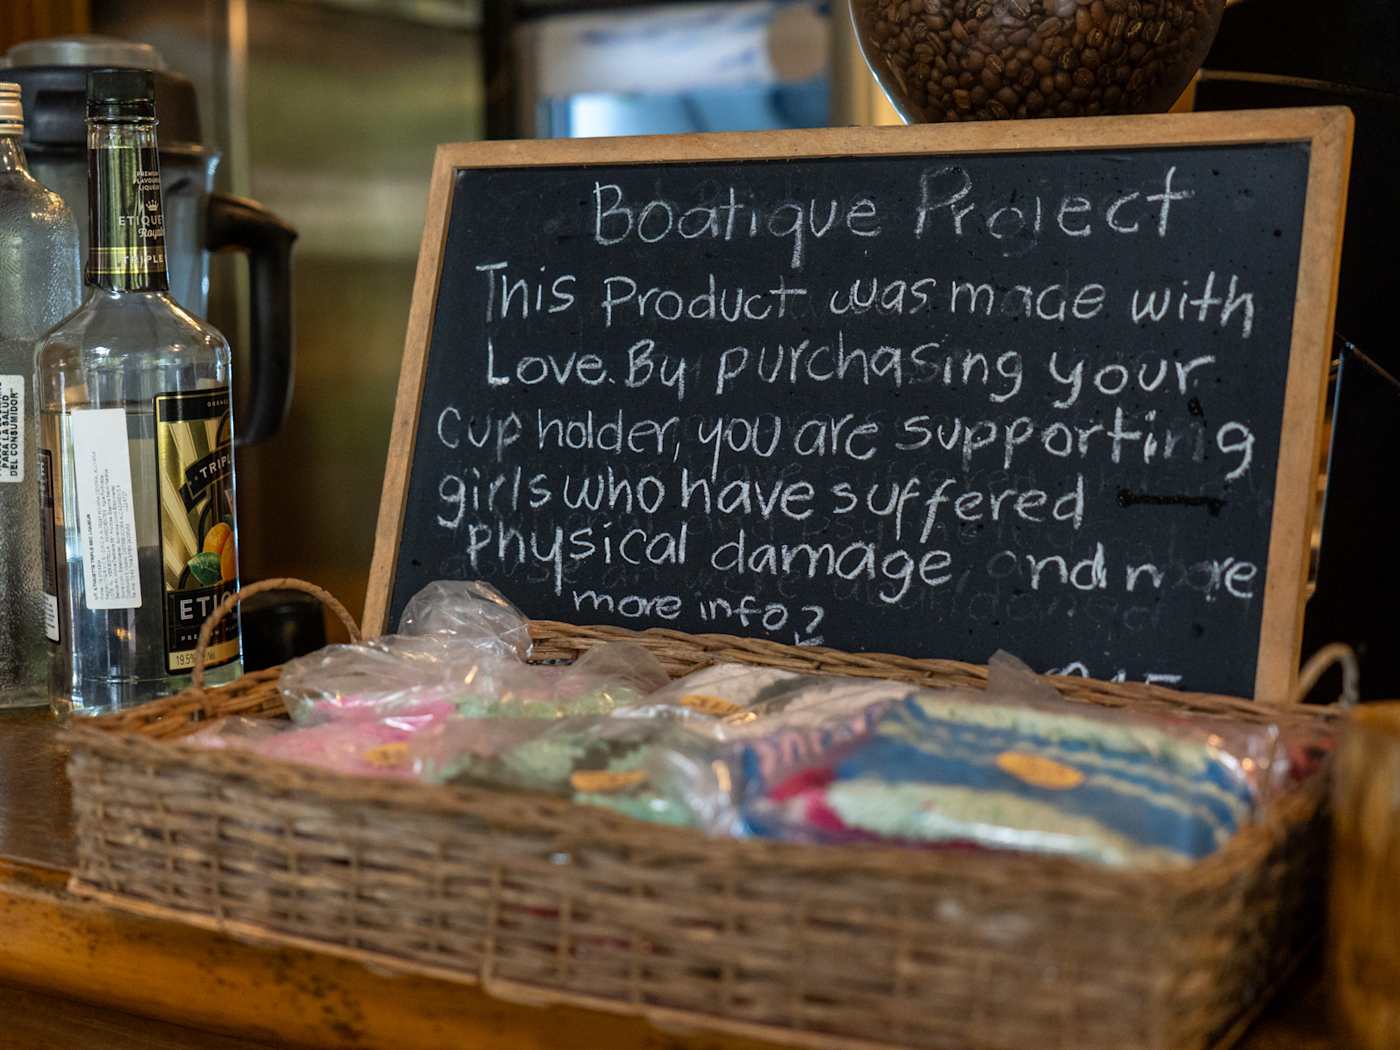 Boatique Project
This Product was made with
Love. By purchasing your
cup holder, you are supporting
girls who have suffered
physical damage and more
more info?
PREMIUM
FLAVOURED
LIQUEUR
ETIQUET
Royale
TRIPLE
TRIPL
ETIQ
19.5%
PARA LA SALUD
DEL CONSUMIDOR"